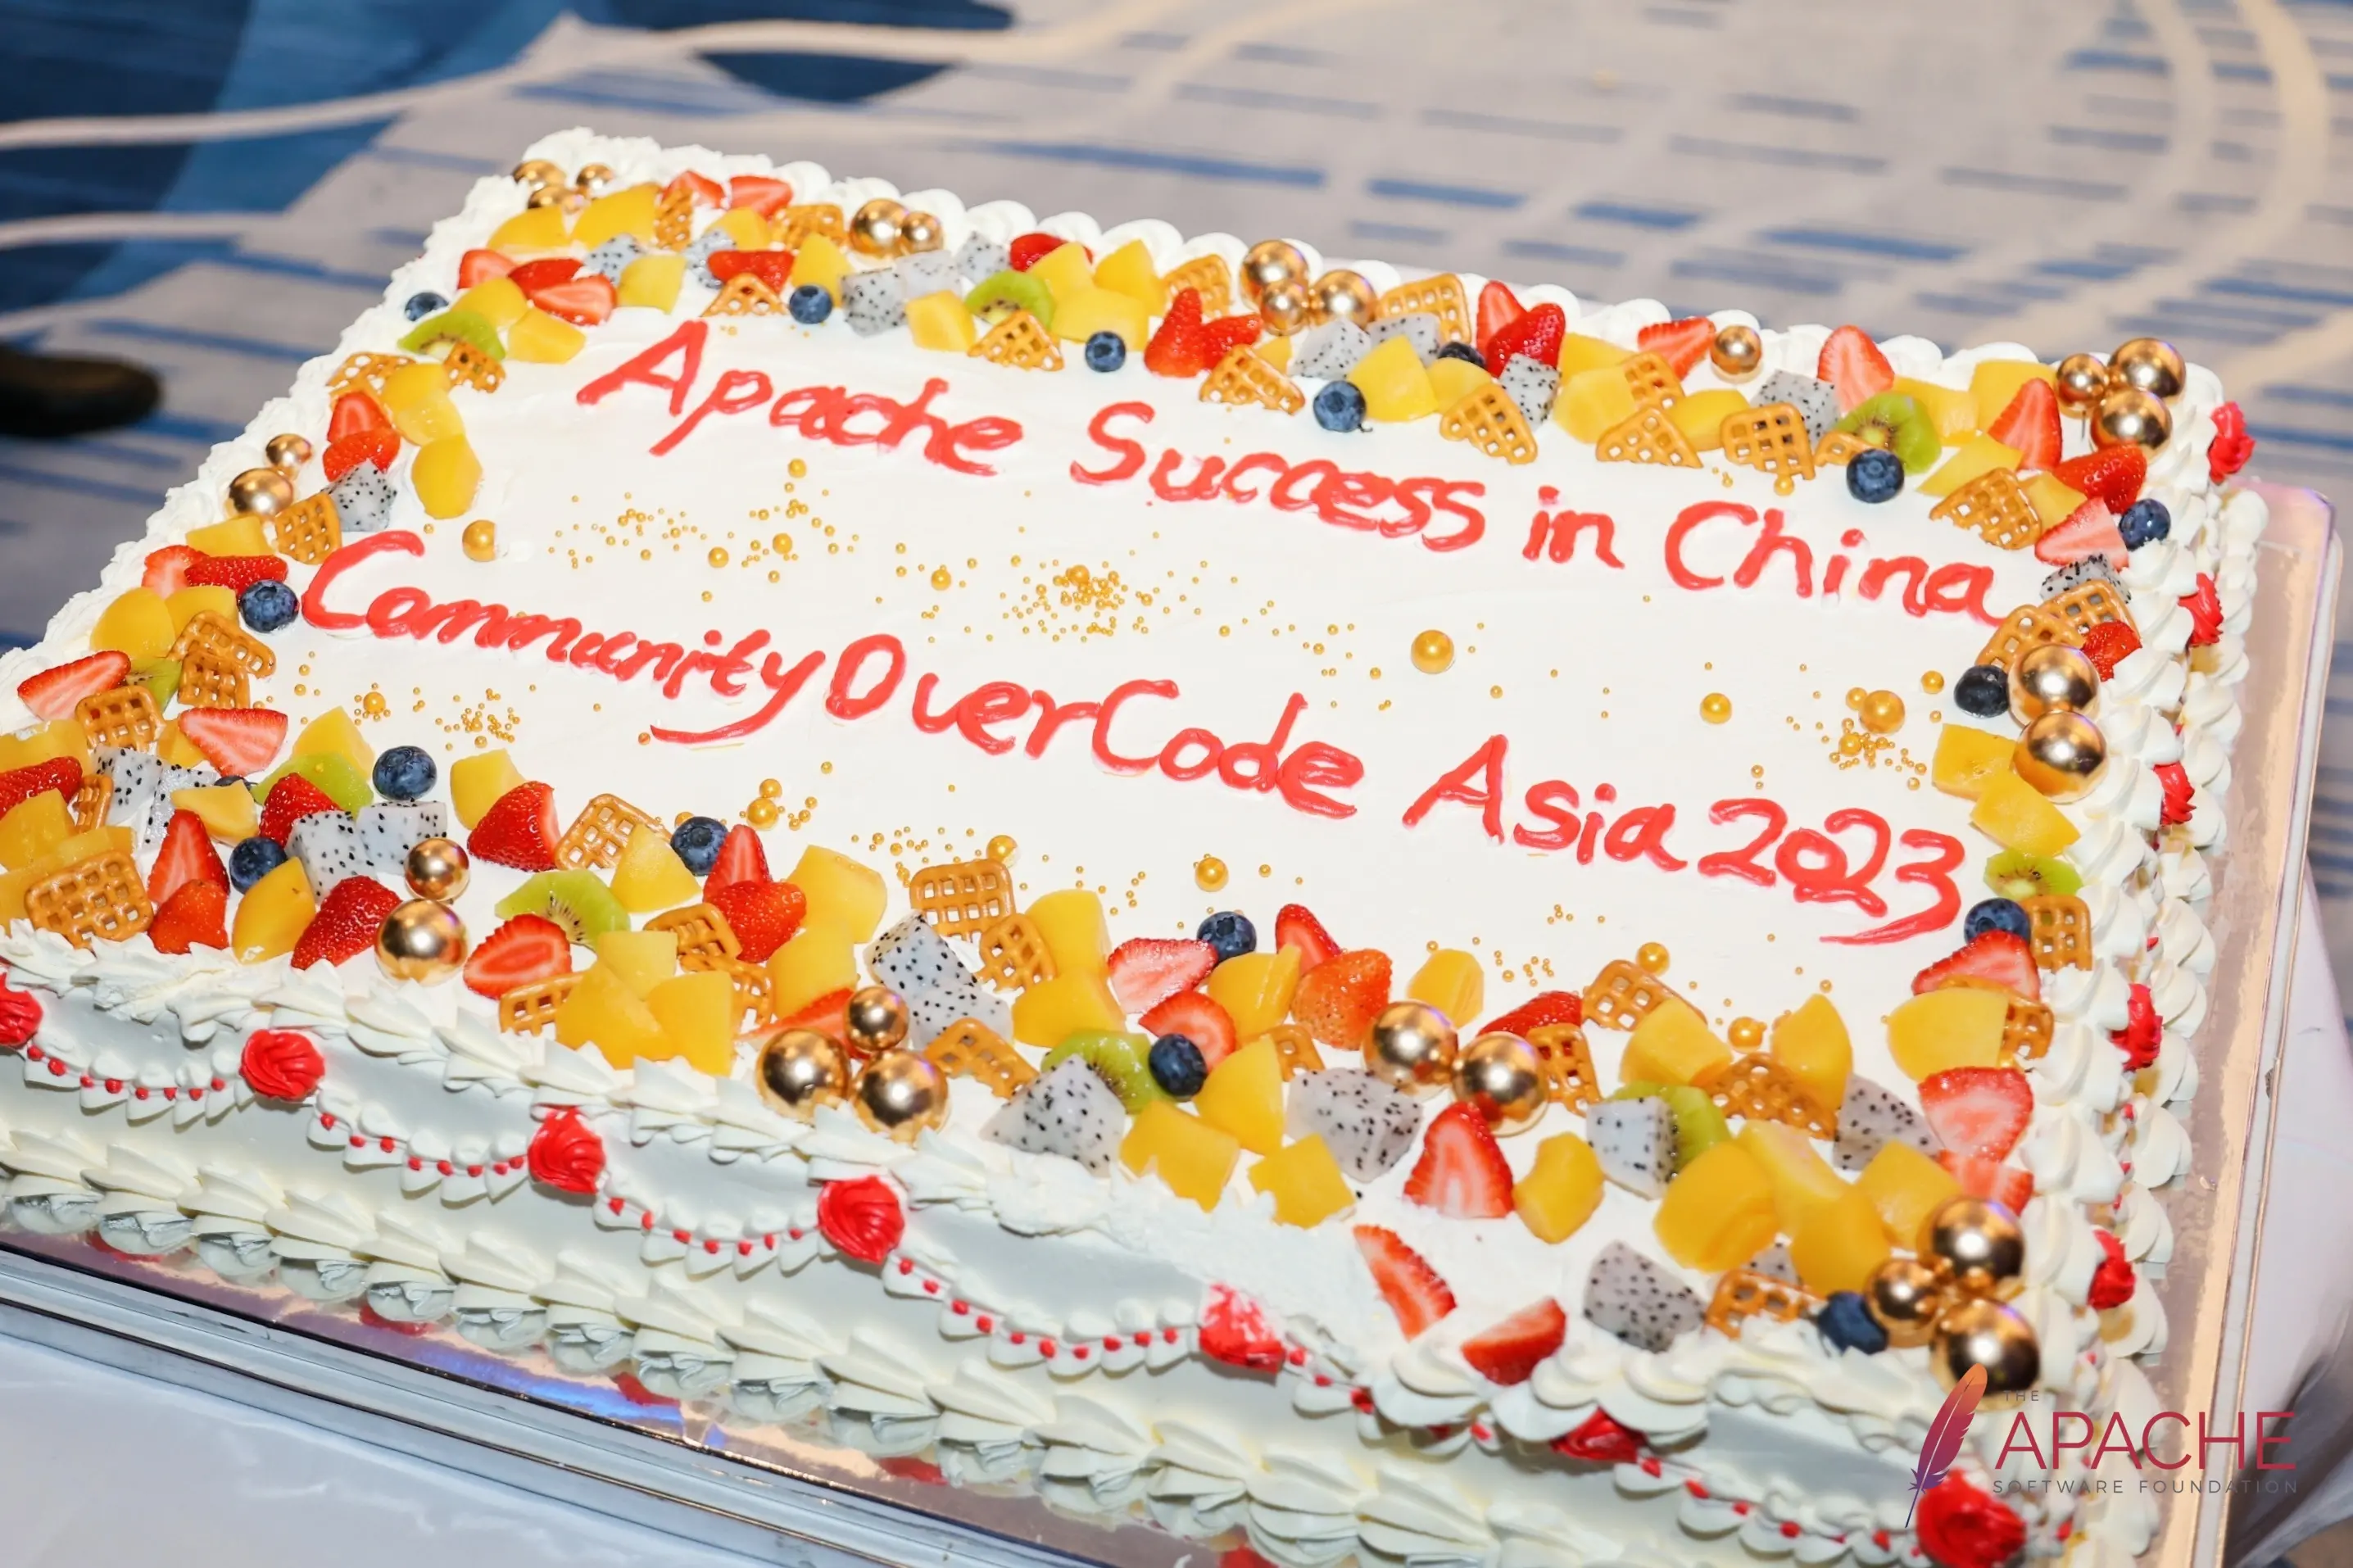 Apache Success in China
CommunityOverCode Asia 2023
THE
APACHE
SOFTWARE FOUNDATION